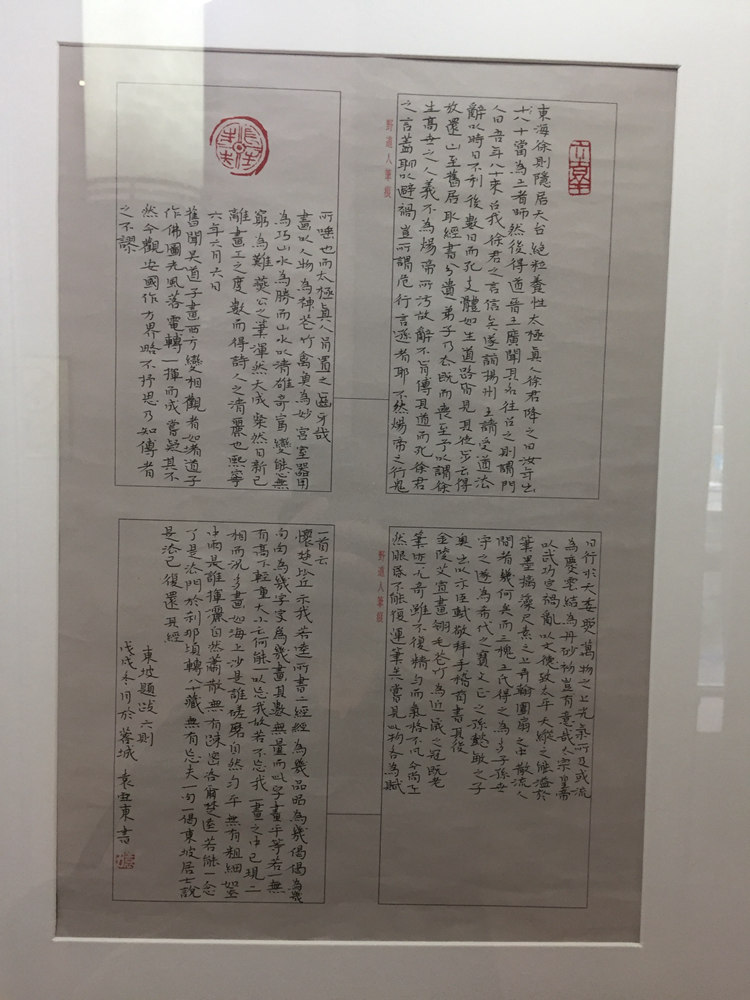 東海徐則隱居天台絕粒養性太極真人徐君降之曰汝年出
八十當為王者師然後得道晉王廣聞其名往召之則謂門
人曰吾年八十來召我徐君之言信矣遂詣揚州王請受道法
辭以時日不利後數日而死支體如生道路皆見其徒步云得
放還山至舊居取經書分遺弟子乃去既而喪至予以謂徐
生高世之人義不為煬帝所污故辭不肯傳其道而死徐君
之言蓋聊以避禍豈所謂危行言遜者耶不然煬帝之行鬼
野道人筆痕
所唾也而太極真人肯置之齒牙哉
畫以人物為神花竹禽魚為妙宮室器用
為巧山水為勝而山水以清雄奇富變態無
窮為難燕公之筆渾然天成粲然日新已
離畫工之度數而得詩人之清麗也熙寧
六年六月六日
舊聞吳道子畫西方變相觀者如堵道子
作佛圓光風落電轉一揮而成嘗疑其不
然今觀安國作方界略不抒思乃知傳者
之不謬
日行於天委照萬物之上光氣所及或流
為慶雲結為丹砂初豈有意哉仁宗皇帝
以武功定禍亂以文德致太平天縱之能溢於
筆墨摛藻尺素之上弄翰團扇之中散流人
間者幾何矣而三槐王氏得之為多子孫世
守之遂為希代之寶文正之孫懿敏之子
奭出以示臣軾敬拜手稽首書其後
金陵艾宣畫翎毛花竹為近歲之冠既老
筆迹尤奇雖不復精勻而氣格不凡今尚在
然眼昏不能復運筆矣嘗見此物各為賦
野道人筆痕
一首云
懷楚比丘示我若逵所書二經經為幾品品為幾偈偈為幾
句句為幾字字為幾畫其數無量而此字畫平等若一無
有高下輕重大小云何能一以忘我故若不忘我一畫之中已現二
相而況多畫如海上沙是誰磋磨自然勻平無有粗細如空
中雨是誰揮灑自然蕭散無有疎密咨爾楚逵若能一念
了是法門於刹那頃轉八十藏無有忘失一句一偈東坡居士說
是法已復還其經
東坡題跋六則
戊戌冬月於蓉城 袁東書